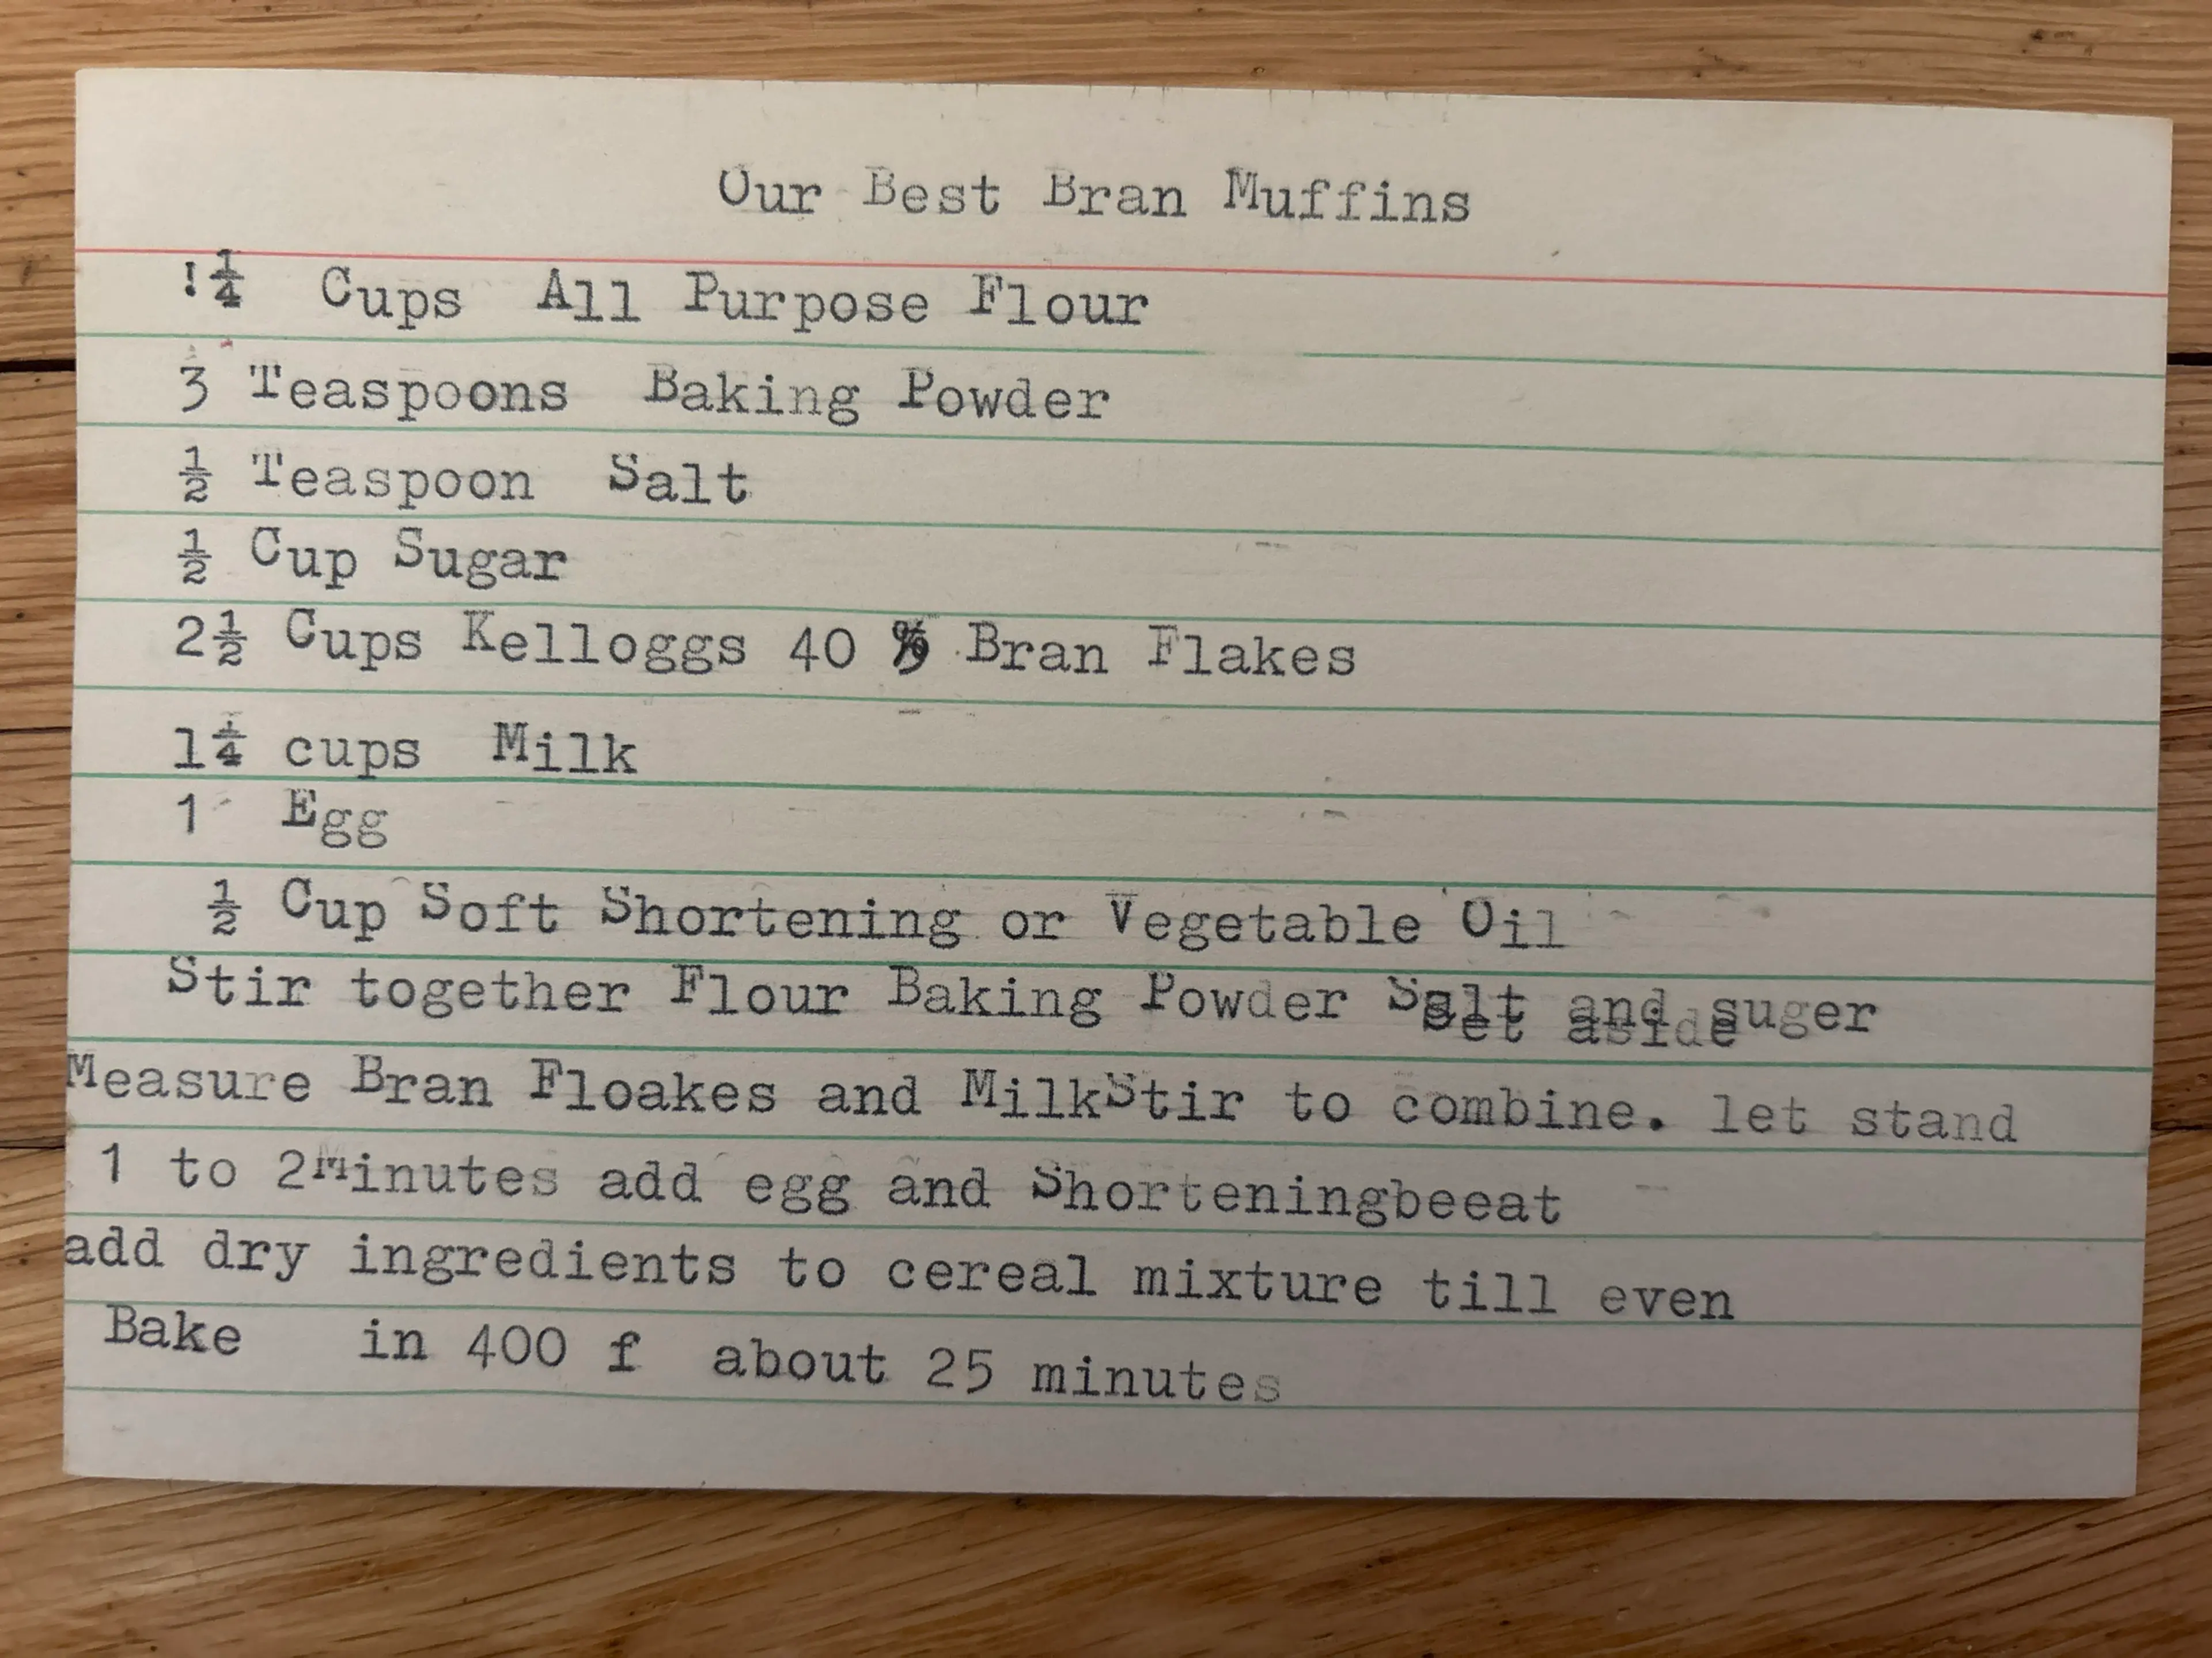 Our Best Bran Muffins
!¼ Cups All Purpose Flour
3 Teaspoons Baking Powder
½ Teaspoon Salt
½ Cup Sugar
2½ Cups Kelloggs 40 % Bran Flakes
1¼ cups Milk
1 Egg
½ Cup Soft Shortening or Vegetable Oil
Stir together Flour Baking Powder Salt and suger
set aside
Measure Bran Floakes and MilkStir to combine. let stand
1 to 2Minutes add egg and Shorteningbeeat
add dry ingredients to cereal mixture till even
Bake in 400 f about 25 minutes